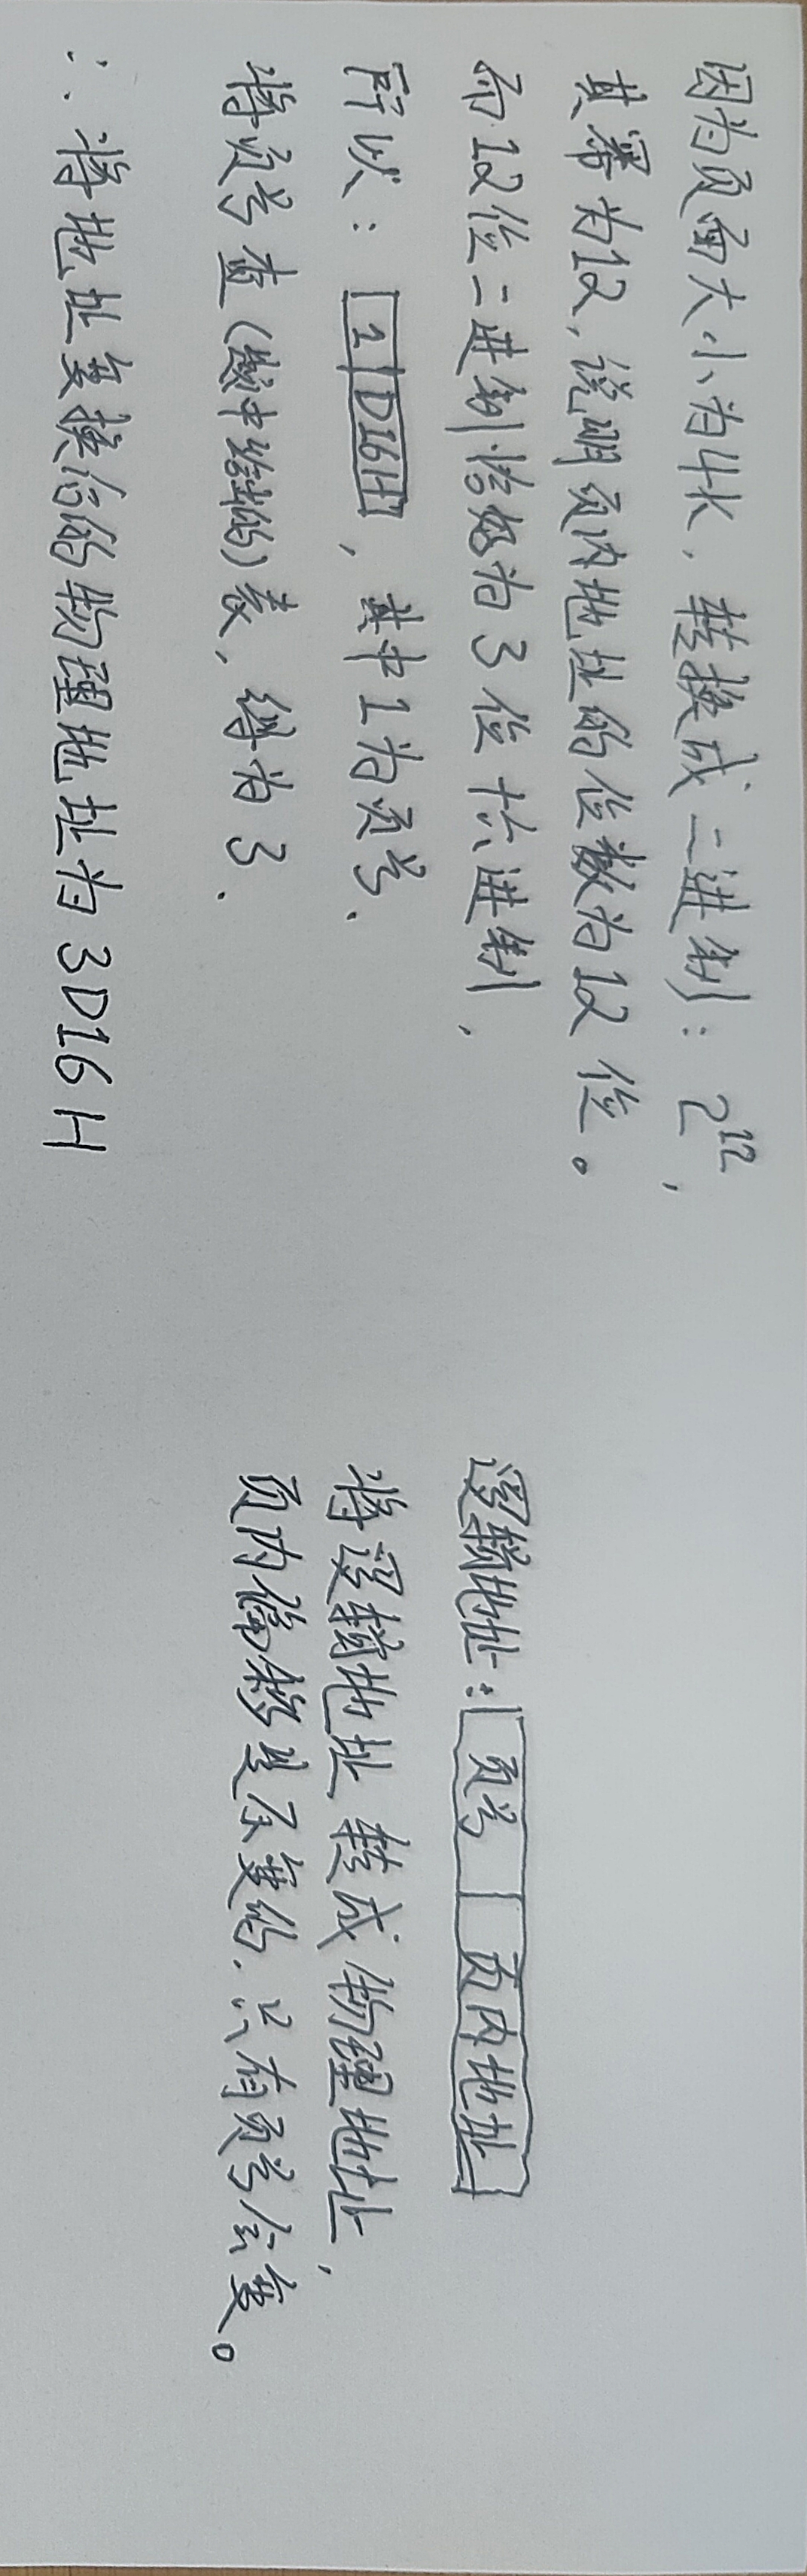 因为页面大小为4K，转换成二进制：2^12，
其幂为12，说明页内地址的位数为12位。
而12位二进制恰好为3位十六进制，
所以：1 D16H，其中1为页号.
将页号查(题中给出的)表，得为3.
∴将地址变换后的物理地址为3D16H
逻辑地址：页号 页内地址
将逻辑地址转成物理地址，
页内偏移是不变的.只有页号会变。